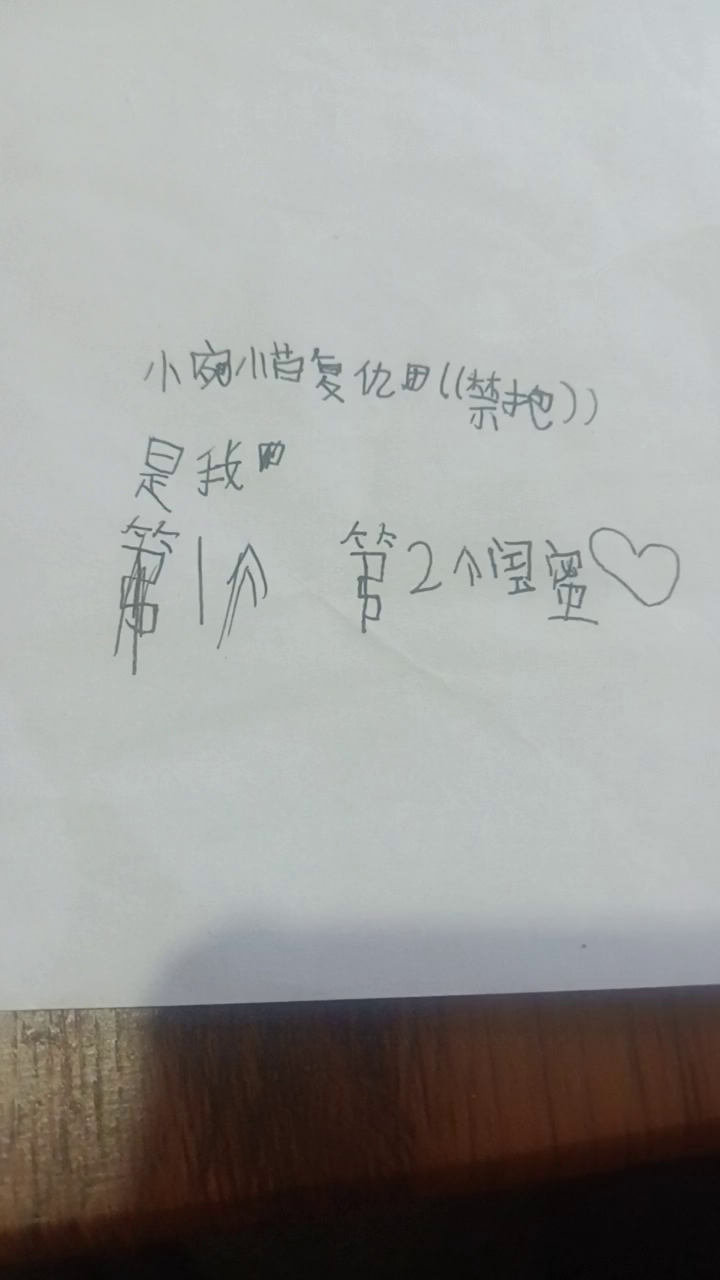 小宛小苗复仇田((禁抱))
是我的
第1个 第2个闺蜜♡